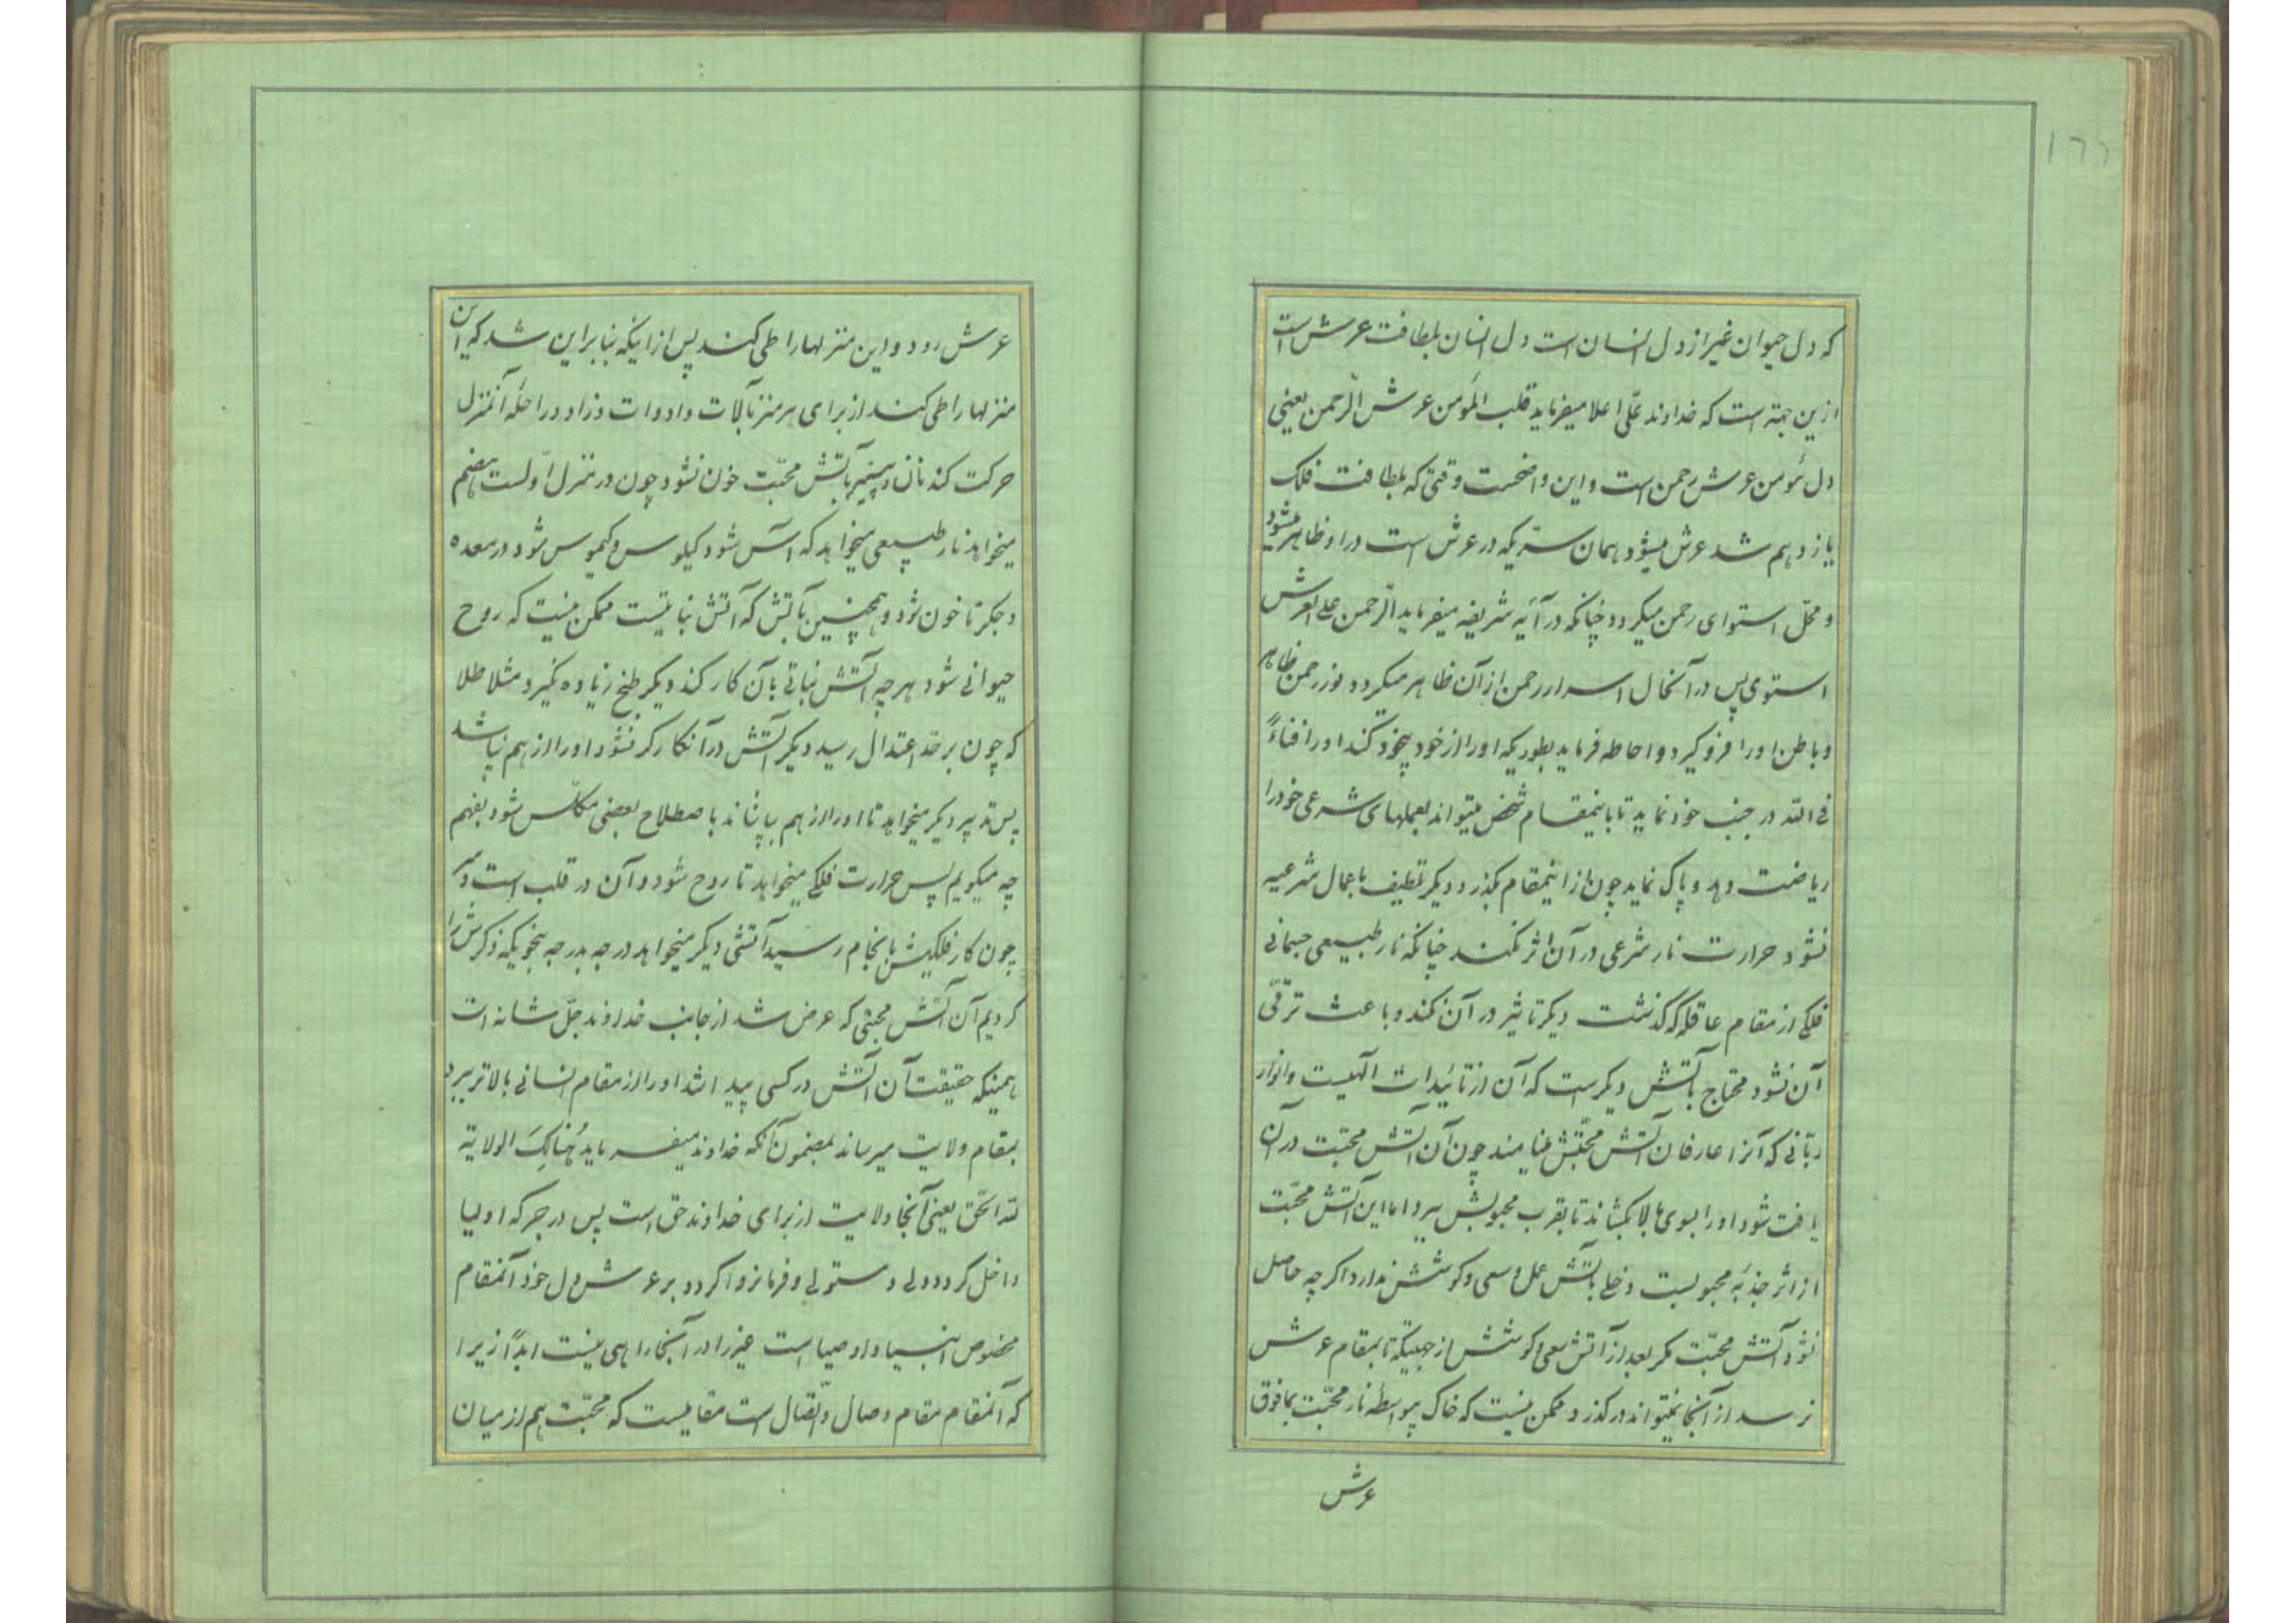 ۱۶۶
که دل حیوان غیر از دل انسان است دل انسان بلطافت عرش است
ازین جهته است که خداوند علّی اعلا میفرماید قلب المؤمن عرش الرّحمن یعنی
دل مؤمن عرش رحمن است و این واضحست وقتی که بلطافت فلک
یازدهم شد عرش میشود همان سرّیکه در عرش است در او ظاهر میشود
و محلّ استوای رحمن میکردد چنانکه در آیه شریفه میفرماید الرّحمن علی العرش
استوی پس در آنحال اسرار رحمن از آن ظاهر میکردد و نور رحمن ظاهر
و باطن او را فرو کیرد و احاطه فرماید بطوریکه او را از خود بیخود کند او را فناءً
فی الله در جنب خود نماید تا باینمقام شخص میتواند بعملهای شرعی خود را
ریاضت دهد و پاک نماید چون از اینمقام بکذرد دیکر تلطیف باعمال شرعیه
نشود حرارت نار شرعی در آن اثر نکند چنانکه نار طبیعی جسمانی
فلکی از مقام عاقله که کذشت دیکر تاثیر در آن نکند و باعث ترقّی
آن نشود محتاج بآتش دیکرست که آن از تائیدات الهیست و انوار
ربّانی که آنرا عارفان آتش محبّتش مینامند چون آن آتش محبّت در آن
یافت شود او را بسوی بالا بکشاند تا بقرب محبوبش ببرد اما این آتش محبّت
از اثر جذبه محبوبست دخلی بآتش عمل و سعی و کوشش ندارد اکرچه حاصل
نشود آتش محبّت مکر بعد از آتش سعی و کوشش از جهتیکه تا بمقام عرش
نرسد از آنجا نمیتواند در کذرد و ممکن نیست که خاک بیواسطه نار محبّت بمافوق
عرش
عرش رود و این منزلها را طی کند پس از اینکه بنا بر این شد که این
منزلها را طی کند از برای هر منزلی آلات و ادوات و زاد و راحلهٔ آنمنزل
حرکت کند نان و پنیر بآتش محبّت خون نشود چون در منزل اولست هضم
میخواهد نار طبیعی میخواهد که آش شود کیلوس و کیموس شود در معده
و جکر تا خون شود و همچنین بآتش که آتش نباتیست ممکن نیست که روح
حیوانی شود هر چه آتش نباتی بآن کار کند دیکر طبخ زیاده نکیرد مثلا طلا
که چون بر حدّ اعتدال رسید دیکر آتش در آن کارکر نشود او را از هم نپاشد
پس تدبیر دیکر میخواهد تا او را از هم بپاشاند باصطلاح بعضی مکلّس شود بفهم
چه میکویم پس حرارت فلکی میخواهد تا روح شود و آن در قلب است و
چون کار فلکیش بانجام رسید آتشی دیکر میخواهد درجه بدرجه بنحویکه ذکرش را
کردیم آن آتش محبتی که عرض شد از جانب خداوند جلّ شانه است
همینکه حقیقت آن آتش در کسی پیدا شد او را از مقام انسانی بالاتر ببرد
بمقام ولایت میرساند بمضمون آنکه خداوند میفرماید هُنالِکَ الولایة
لله الحّق یعنی آنجا ولایت از برای خداوند حق است پس در جرکه اولیا
داخل کردد ولی و مستولی و فرمانروا کردد بر عرش دل خود آنمقام
مخصوص انبیا و اوصیا است غیر را در آنجا راهی نیست ابدًا زیرا
که آنمقام مقام وصال و اتّصال است مقامیست که محبّت هم از میان